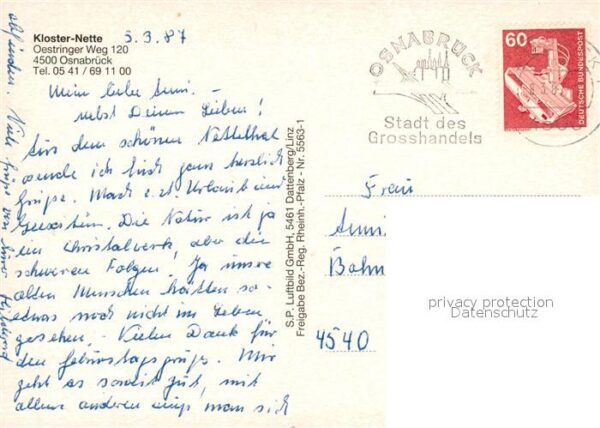 Kloster-Nette
Oestringer Weg 120
4500 Osnabrück
Tel. 05 41 / 69 11 00
5.3.87
Mein liebe Anni. -
nebst Deinen Lieben!
Aus dem schönen Nettethal
wende ich Euch ganz herzlich
Grüße. Mach z. zt. Urlaub in
Die Natur ist ja
ein Christalwerk, aber die
schweren Folgen. Ja unsere
alten Menschen hätten so-
etwas noch nicht im Leben
gesehen. - Vielen Dank für
den Geburtstagsgruß. Mir
geht es soweit gut, mit
allem anderen muß man sich
abfinden. Viele Grüße von
S.P. Luftbild GmbH, 5461 Dattenberg/Linz
Freigabe Bez.-Reg. Rheinh.-Pfalz - Nr. 5563-1
OSNABRÜCK
Stadt des
Grosshandels
60
DEUTSCHE BUNDESPOST
Frau
Anni
Bahn
4540
privacy protection
Datenschutz